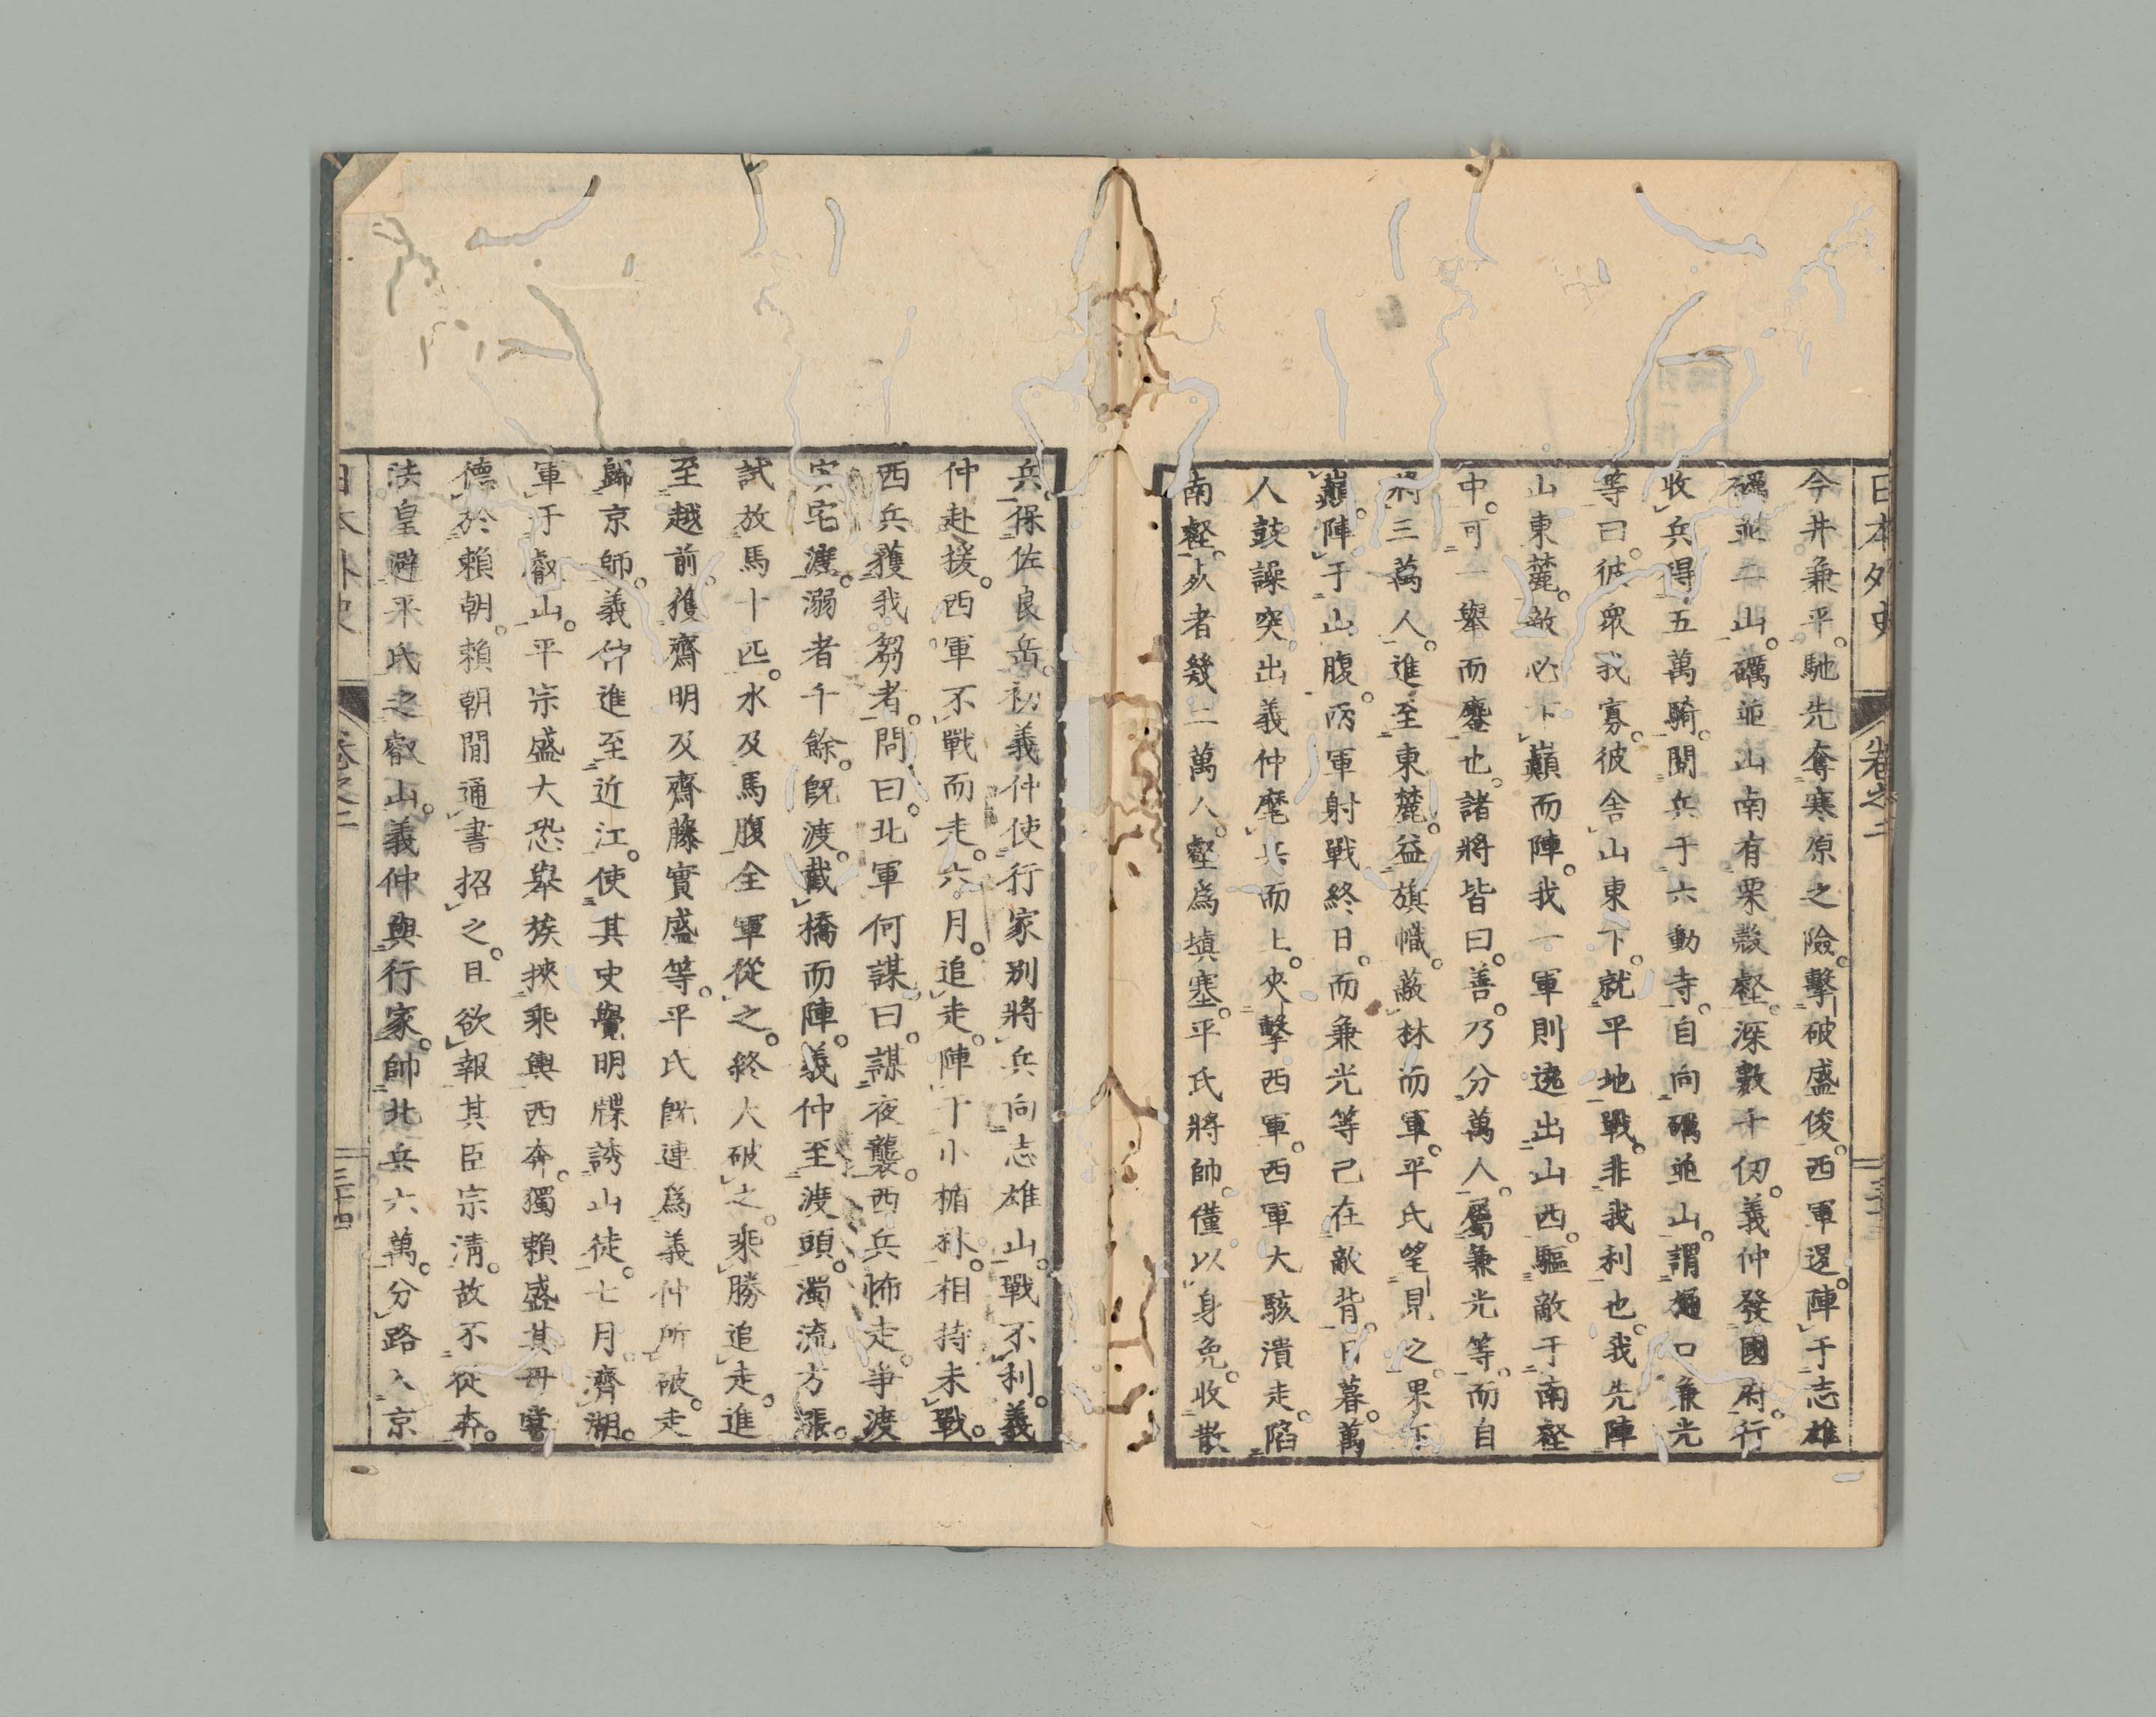 日本外史 卷之二
今井兼平。馳先奪寒原之險。擊破盛俊。西軍還。陣于志雄
礪並二山。礪並山南有栗殼壑。深數千仞。義仲發國府。行
收兵得五萬騎。聞兵于六動寺。自向礪並山。謂樋口兼光
等曰。彼衆我寡。彼舍山東下。就平地戰。非我利也。我先陣
山東麓。敵必下巔而陣。我一軍則遶出山西。驅敵于南壑
中。可一舉而鏖也。諸將皆曰。善。乃分萬人。屬兼光等。而自
將三萬人。進至東麓。益旗幟。蔽林而軍。平氏望見之。果下
巔。陣于山腹。兩軍射戰終日。而兼光等已在敵背。日暮。萬
人鼓譟突出義仲麾兵而上。夾擊西軍。西軍大駭潰走。陷
南壑。死者幾二萬人。壑爲塡塞。平氏將帥僅以身免。收散
兵。保佐良岳。初義仲使行家別將兵向志雄山。戰不利。義
仲赴援。西軍不戰而走。六月。追走。陣于小楯林。相持未戰。
西兵獲我芻者。問曰。北軍何謀。曰。謀夜襲。西兵怖走。爭渡
安宅渡。溺者千餘。既渡。截橋而陣。義仲至渡頭。濁流方漲。
試放馬十匹。水及馬腹。全軍從之。終大破之。乘勝追走。進
至越前。獲齋明及齋藤實盛等。平氏既連爲義仲所破。走
歸京師。義仲進至近江。使其史覺明牒誘山徒。七月。濟湖。
軍于叡山。平宗盛大恐。舉族挾乘輿西奔。獨賴盛其母嘗
德於賴朝。賴朝間通書招之。且欲報其臣宗淸。故不從奔。
法皇避平氏之叡山。義仲與行家。帥北兵六萬。分路入京
日本外史 卷之二 三十四